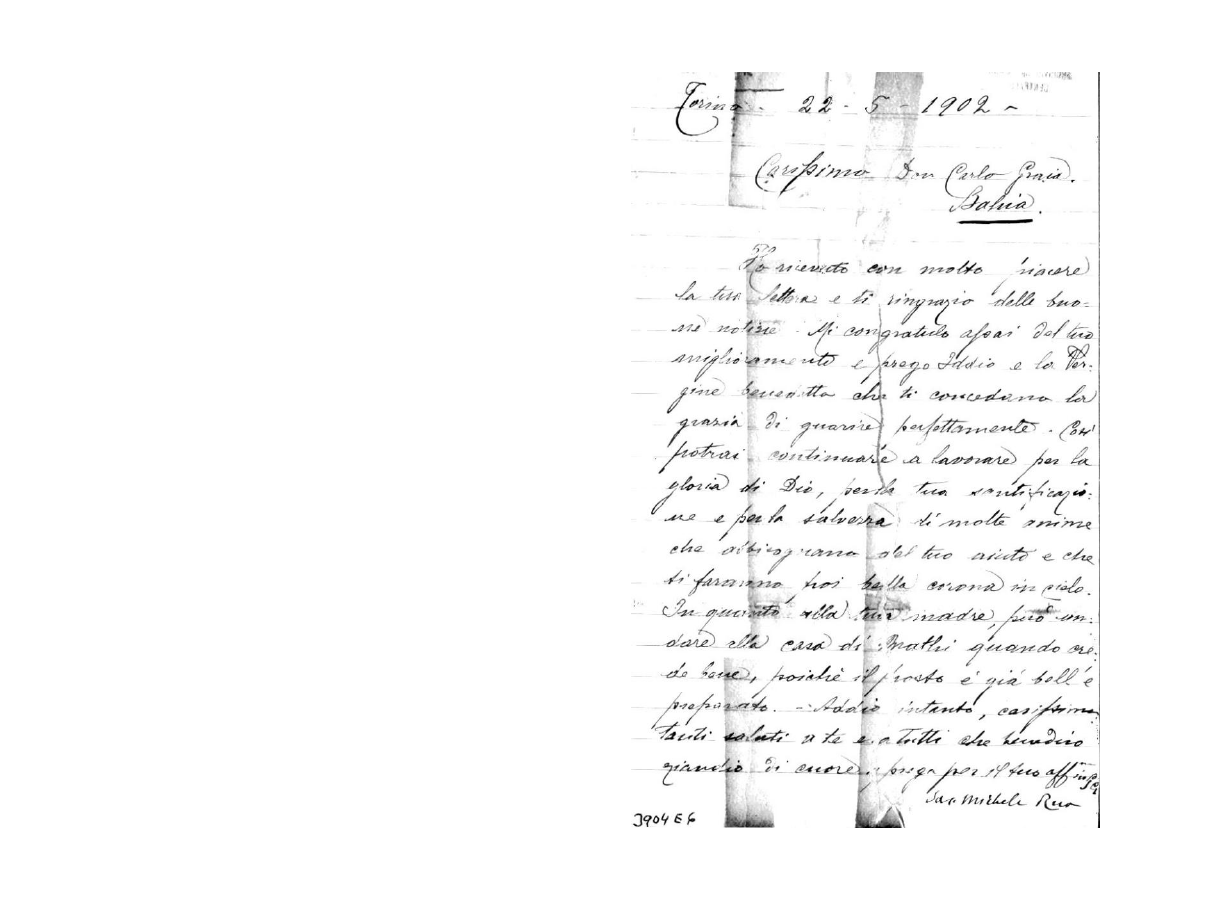 Torino - 22 - 5 - 1902 -
Carissimo Don Carlo
Bahia.
Ho ricevuto con molto piacere
la tua lettera e ti ringrazio delle buo-
ne notizie. Mi congratulo assai del tuo
miglioramento e prego Iddio e la Ver-
gine benedetta che ti concedano la
grazia di guarire perfettamente. Così
potrai continuare a lavorare per la
gloria di Dio, per la tua santificazio-
ne e per la salvezza di molte anime
che abbisognano del tuo aiuto e che
ti faranno poi bella corona in cielo.
In quanto alla tua madre, può an-
dare alla casa di Mathi quando cre-
de bene, poichè il posto è già bell'e
preparato. - Addio intanto, carissimo,
tanti saluti a te e a tutti che benedico
di cuore, prega per il tuo aff.mo
Sac. Michele Rua
3904 E 6